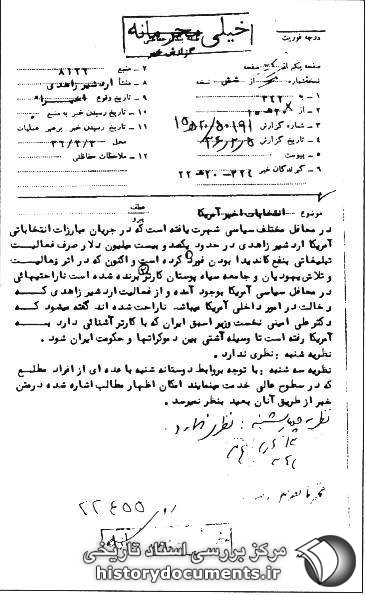 خیلی محرمانه
درجه فوریت
گزارش خبر
صفحه یک از یک صفحه
نسخه شماره از شش نسخه
۱ - به ۳۴۲
۲ - از ۲۰ ه ۱۵
۳ - شماره گزارش
۴ - تاریخ گزارش
۵ - پیوست
۶ - گیرندگان خبر ۳۲۴ - ۲۰ ه ۲۲
۷ - منبع ۸۱۲۲
۸ - منشأ اردشیر زاهدی
۹ - تاریخ وقوع اخیرا
۱۰ - تاریخ رسیدن خبر به منبع
۱۱ - تاریخ رسیدن خبر به رهبر عملیات
محل ۳۶/۳/۳
۱۲ - ملاحظات حفاظتی
موضوع انتخابات اخیر آمریکا
عطف
پیرو
در محافل مختلف سیاسی شهرت یافته است که در جریان مبارزات انتخاباتی
آمریکا اردشیر زاهدی در حدود یکصد و بیست میلیون دلار صرف فعالیت
تبلیغاتی بنفع کاندیدا بودن فورد کرده است و اکنون که در اثر فعالیت
و تلاش یهودیان و جامعه سیاه پوستان کارتر برنده شده است ناراحتیهائی
در محافل سیاسی آمریکا بوجود آمده و از فعالیت اردشیر زاهدی که
دخالت در امور داخلی آمریکا میباشد ناراحت شده اند گفته میشود که
دکتر علی امینی نخست وزیر اسبق ایران که با کارتر آشنائی دارد به
آمریکا رفته است تا وسیله آشتی بین دموکراتها و حکومت ایران شود.
نظریه شنبه : نظری ندارد.
نظریه سه شنبه : با توجه بروابط دوستانه شنبه با عده ای از افراد مطلع
که در سطوح عالی خدمت مینمایند امکان اظهار مطالب اشاره شده در متن
خبر از طریق آنان بعید بنظر نمیرسد.
نظریه چهارشنبه : نظری ندارد
۲۲۴۵۵
مرکز بررسی اسناد تاریخی
historydocuments.ir